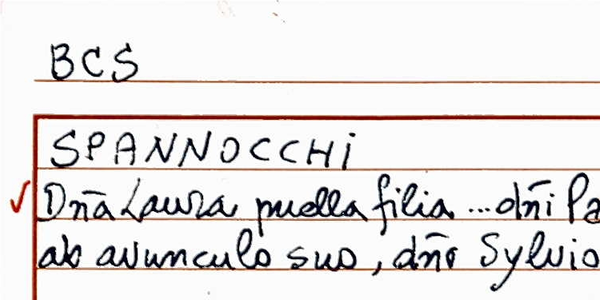 BCS
SPANNOCCHi
Dn̄a Laura puella filia ... dn̄i Pa
ab avunculo suo, dn̄o Sylvio